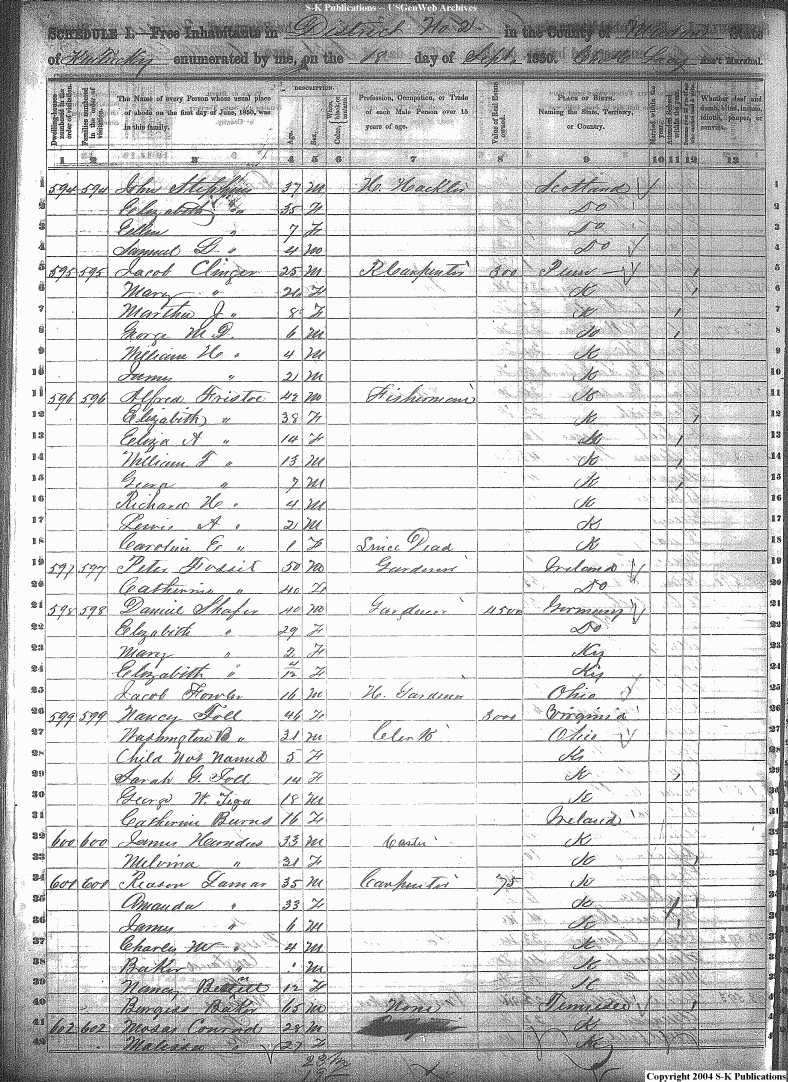 S-K Publications -- USGenWeb Archives
SCHEDULE I.—Free Inhabitants in District No 2. in the County of Mason State
of Kentucky enumerated by me, on the 18 day of Sept. 1850. Ass't Marshal.
DESCRIPTION.
Dwelling-houses numbered in the order of visitation. Families numbered in the order of visitation. The Name of every Person whose usual place of abode on the first day of June, 1850, was in this family. Age. Sex. White, black, or mulatto. Color, Profession, Occupation, or Trade of each Male Person over 15 years of age. Value of Real Estate owned. Place of Birth. Naming the State, Territory, or Country. Married within the year. Attended School within the year. Whether deaf and dumb, blind, insane, idiotic, pauper, or convict.
1 2 3 4 5 6 7 8 9 10 11 12 13
1 594 594 John 37 M H. Hackler Scotland 1
2 Elizabeth " 35 F Do 2
3 Ellen " 7 F Do 3
4 Samuel D. " 4 M Do 4
5 595 595 Jacob Clinger 25 M Carpenter 300 Penn 5
6 Mary " F K 6
7 Martha J " 8 F K 7
8 George M. D. 6 M K 8
9 William H " 4 M K 9
10 James " 2 M K 10
11 596 596 Alfred Fristoe 42 M Fisherman K 11
12 Elizabeth " 38 F K 12
13 Eliza A " 14 F K 13
14 William F " 13 M K 14
15 " 7 M K 15
16 Richard H " 4 M K 16
17 Lewis A " 2 M K 17
18 Caroline E " 1 F Since Dead K 18
19 597 597 Peter Fossit 50 M Gardener Ireland 19
20 Catherine " 40 F Do 20
21 598 598 Daniel Shafer 40 M Gardener 4500 Germany 21
22 Elizabeth " 29 F Do 22
23 Mary " 2 F Ky 23
24 Elizabeth " 4/12 F Ky 24
25 Jacob Fowler 16 M H. Gardener Ohio 25
26 599 599 Nancy Toll 46 F 3000 Virginia 26
27 Washington B " 21 M Clerk Ohio 27
28 Child Not Named 5 F K 28
29 Sarah G. Toll 14 F K 29
30 George W. 18 M K 30
31 Catherine Burns 16 F Ireland 31
32 600 600 James 33 M K 32
33 Melvina " 31 F K 33
34 601 601 Reason Lamar 35 M Carpenter 75 K 34
35 Amanda " 33 F K 35
36 James " 6 M K 36
37 Charles M " 4 M K 37
38 Baker " M K 38
39 Nancy 12 F K 39
40 Burgess Baker 65 M None 40
41 602 602 Moses Conrad 28 M K 41
42 Malissa " 27 F K 42
Copyright 2004 S-K Publications